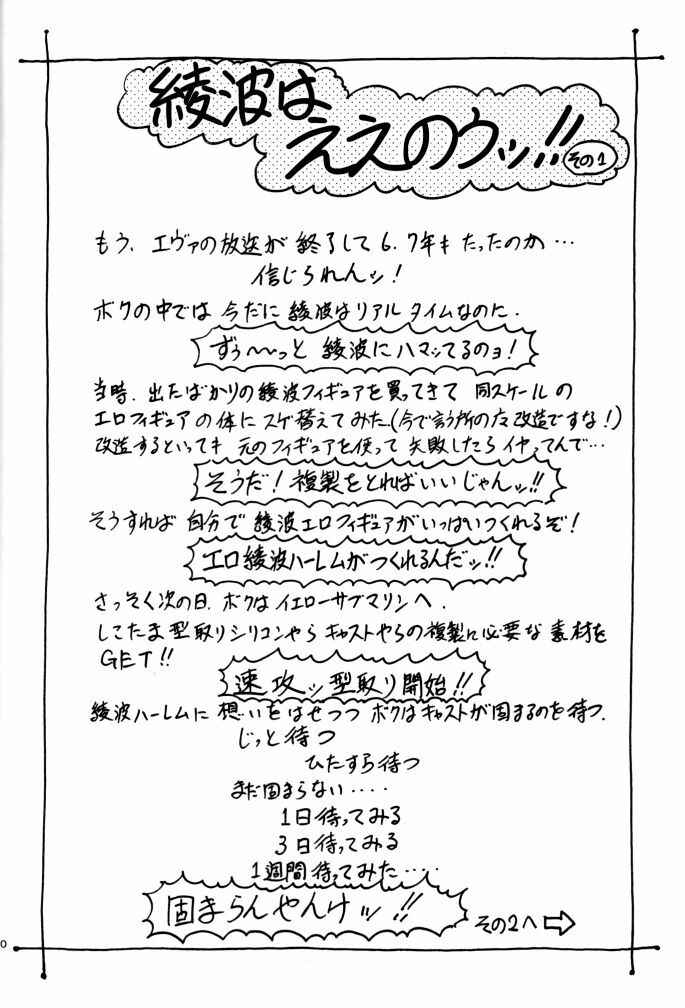 綾波は
ええのウッ!!
その1
もう、エヴァの放送が終了して6.7年もたったのか…
信じられんッ!
ボクの中では今だに綾波はリアルタイムなのに.
ずぅ〜〜っと綾波にハマッてるのョ!
当時.出たばかりの綾波フィギュアを買ってきて同スケールの
エロフィギュアの体にスゲ替えてみた.(今で言う所の左改造ですな!)
改造するといっても元のフィギュアを使って失敗したらイヤってんで…
そうだ!複製をとればいいじゃんッ!!
そうすれば自分で綾波エロフィギュアがいっぱいつくれるぞ!
エロ綾波ハーレムがつくれるんだッ!!
さっそく次の日.ボクはイエローサブマリンへ.
しこたま型取りシリコンやらキャストやらの複製に必要な素材を
GET!!
速攻ッ型取り開始!!
綾波ハーレムに想いをはせつつボクはキャストが固まるのを待つ.
じっと待つ
ひたすら待つ
まだ固まらない‥‥
1日待ってみる
3日待ってみる
1週間待ってみた‥‥
固まらんやんけッ!!
その2へ⇨
0